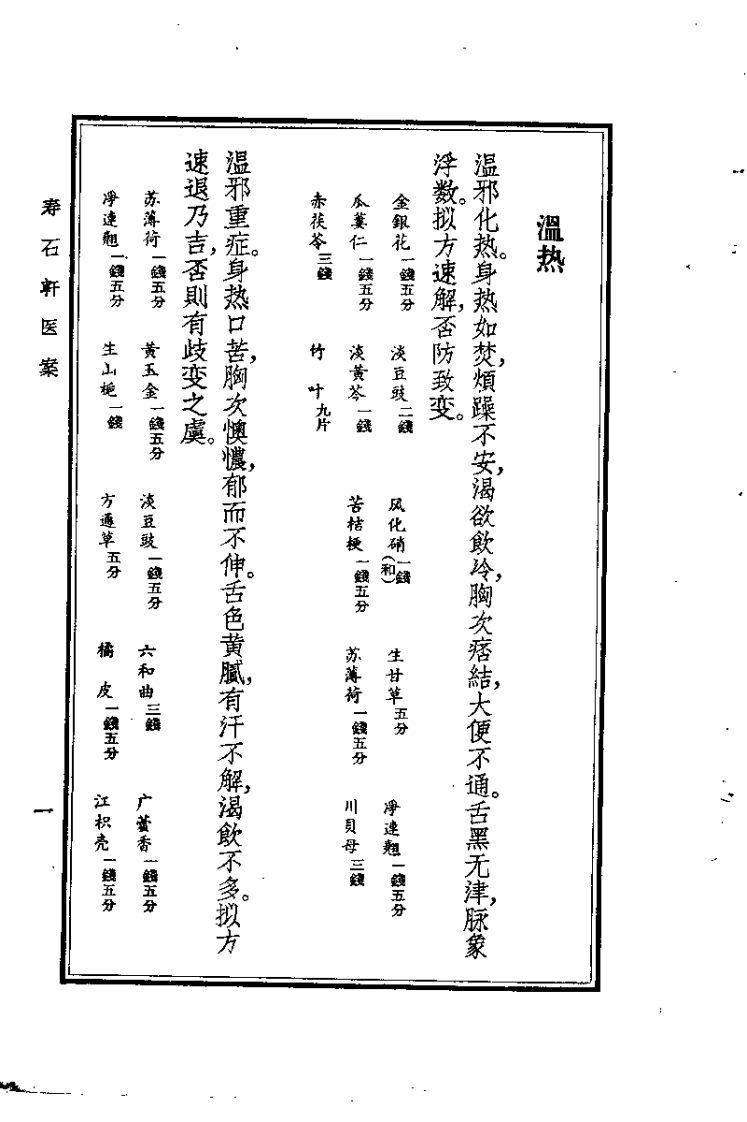 溫热
溫邪化热。身热如焚，煩躁不安，渴欲飲冷，胸次痞結，大便不通。舌黑无津，脉象
浮数。拟方速解，否防致变。
金銀花一錢五分 淡豆豉二錢 风化硝一錢(和) 生甘草五分 淨連翹一錢五分
瓜蔞仁一錢五分 淡黃芩一錢 苦桔梗一錢五分 苏薄荷一錢五分 川貝母三錢
赤茯苓三錢 竹叶九片
溫邪重症。身热口苦，胸次懊憹，郁而不伸。舌色黄膩，有汗不解，渴飲不多。拟方
速退乃吉，否則有歧变之虞。
苏薄荷一錢五分 黃玉金一錢五分 淡豆豉一錢五分 六和曲三錢 广藿香一錢五分
淨連翹一錢五分 生山梔一錢 方通草五分 橘皮一錢五分 江枳壳一錢五分
寿石軒医案
一